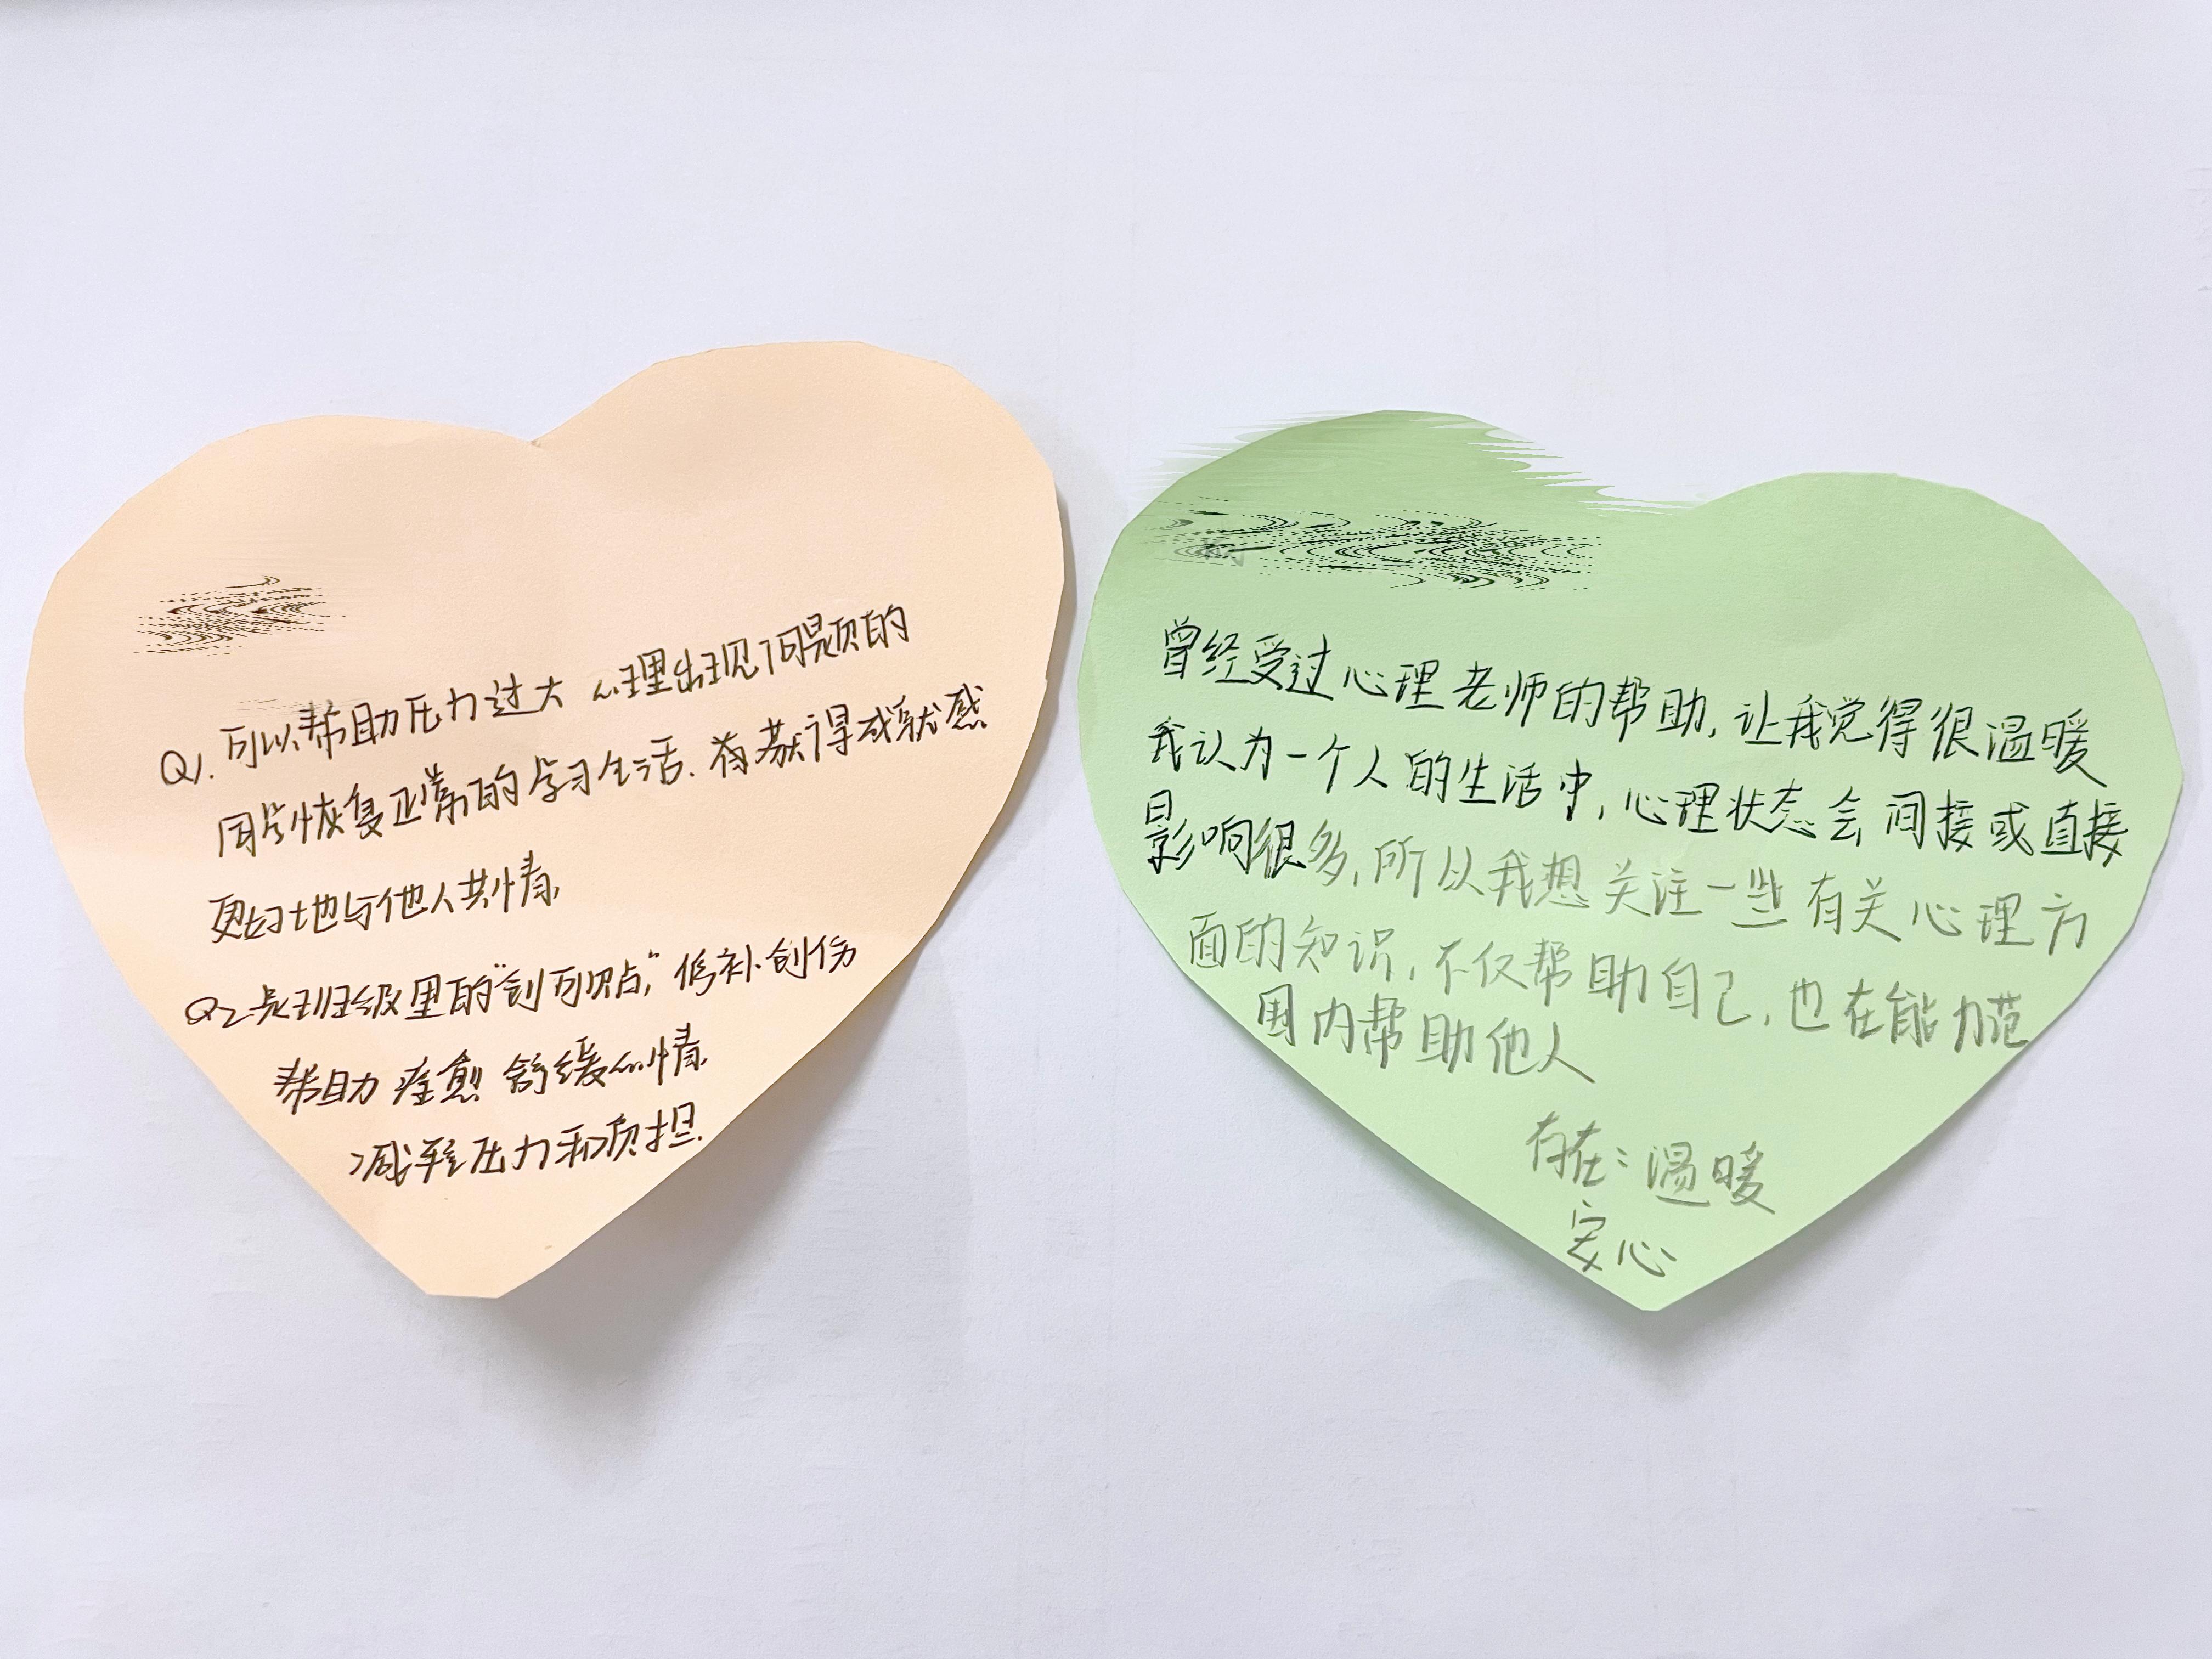 Q1.可以帮助压力过大 心理出现问题的
同学恢复正常的学习生活.有获得成就感
更好地与他人共情.
Q2.是班级里的“创可贴”,修补创伤
帮助 痊愈 舒缓心情.
减轻压力和负担.
曾经受过心理老师的帮助,让我觉得很温暖
我认为一个人的生活中,心理状态会间接或直接
影响很多,所以我想关注一些有关心理方
面的知识,不仅帮助自己,也在能力范
围内帮助他人
存在:温暖
安心